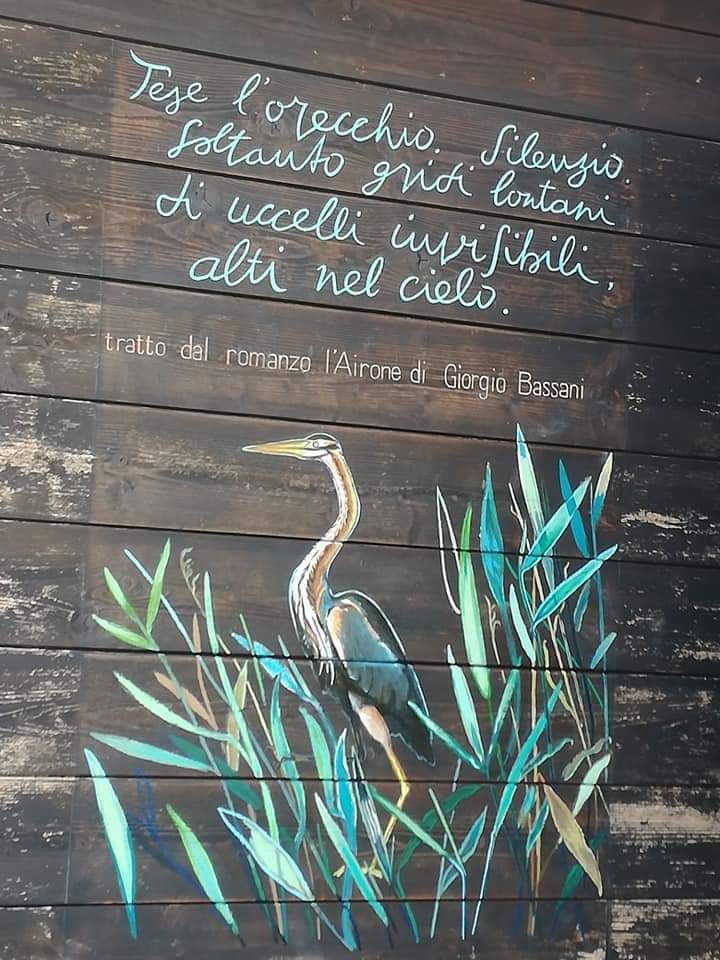 Tese l'orecchio. Silenzio.
Soltanto gridi lontani
di uccelli invisibili,
alti nel cielo.
tratto dal romanzo l'Airone di Giorgio Bassani